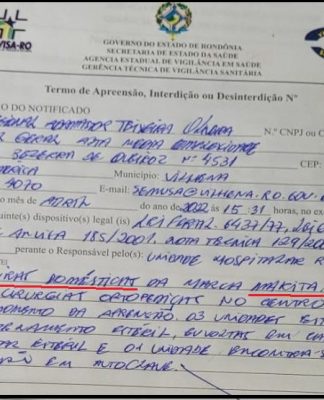 VISA-RO
GOVERNO DO ESTADO DE RONDÔNIA
SECRETARIA DE ESTADO DA SAÚDE
AGENCIA ESTADUAL DE VIGILÂNCIA EM SAÚDE
GERÊNCIA TÉCNICA DE VIGILÂNCIA SANITÁRIA
Termo de Apreensão, Interdição ou Desinterdição Nº
O DO NOTIFICADO
TEIXEIRA N.º CNPJ ou C
4531
4070 Município: VILHENA
E-mail: SEMUSA@VILHENA.RO.GOV.
o mês de ABRIL do ano de 2022 às 15:31 horas, no ex
uinte(s) dispositivo(s) legal (is) LEI FERAL 6437/77,
185/2001. NOTA TECNICA 129/20
perante o Responsável pelo(s): UNIDADE HOSPITALAR R
DOMÉSTICAS DA MARCA MAKITA
CIRURGIAS ORTOPEDICAS NO CENTRO
MOMENTO DA APRENÇÃO. 03 UNIDADES EST
ESTÉRIL, ENVOLTAS EM
ESTÉRIL E 01 UNIDADE ENCONTRA-S
EM AUTOCLAVE.